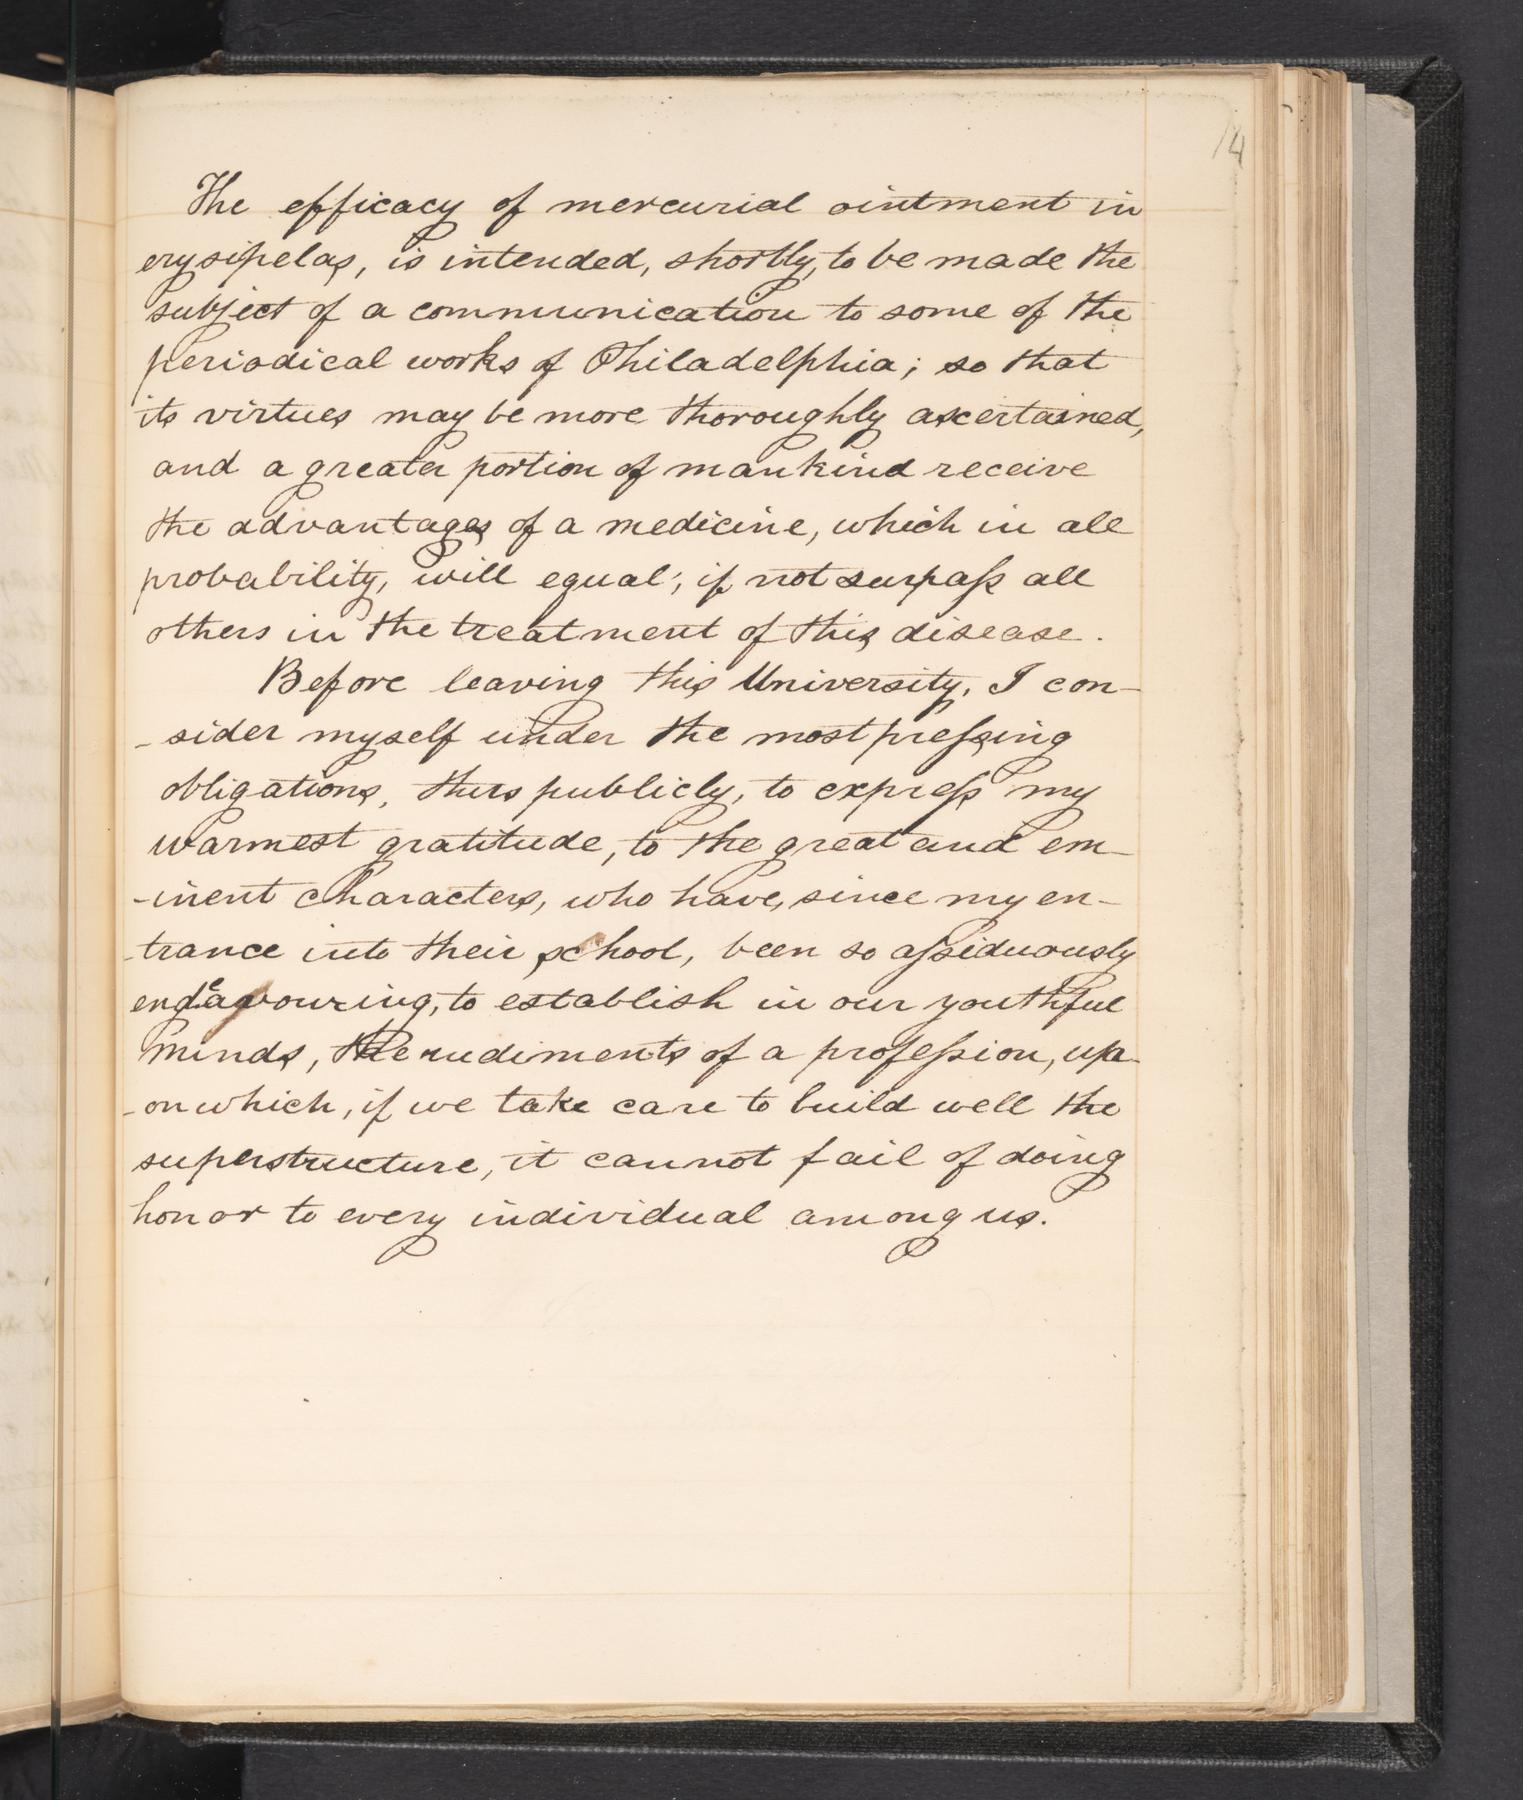 14
The efficacy of mercurial ointment in
erysipelas, is intended, shortly, to be made the
subject of a communication to some of the
periodical works of Philadelphia; so that
its virtues may be more thoroughly ascertained,
and a greater portion of mankind receive
the advantages of a medicine, which in all
probability, will equal; if not surpaſs all
others in the treatment of this disease.
Before leaving this University, I con-
-sider myself under the most preſsing
obligations, thus publicly, to expreſs my
warmest gratitude, to the great and em-
-inent characters, who have, since my en-
-trance into their school, been so aſsiduously
endeavouring, to establish in our youthful
minds, the rudiments of a profeſsion, up-
-on which, if we take care to build well the
superstructure, it cannot fail of doing
honor to every individual among us.